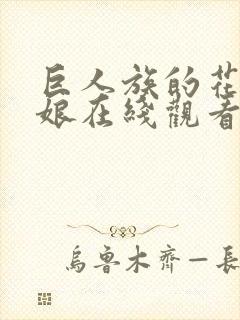 巨人族的花
娘在綫觀看
烏魯木齊—長